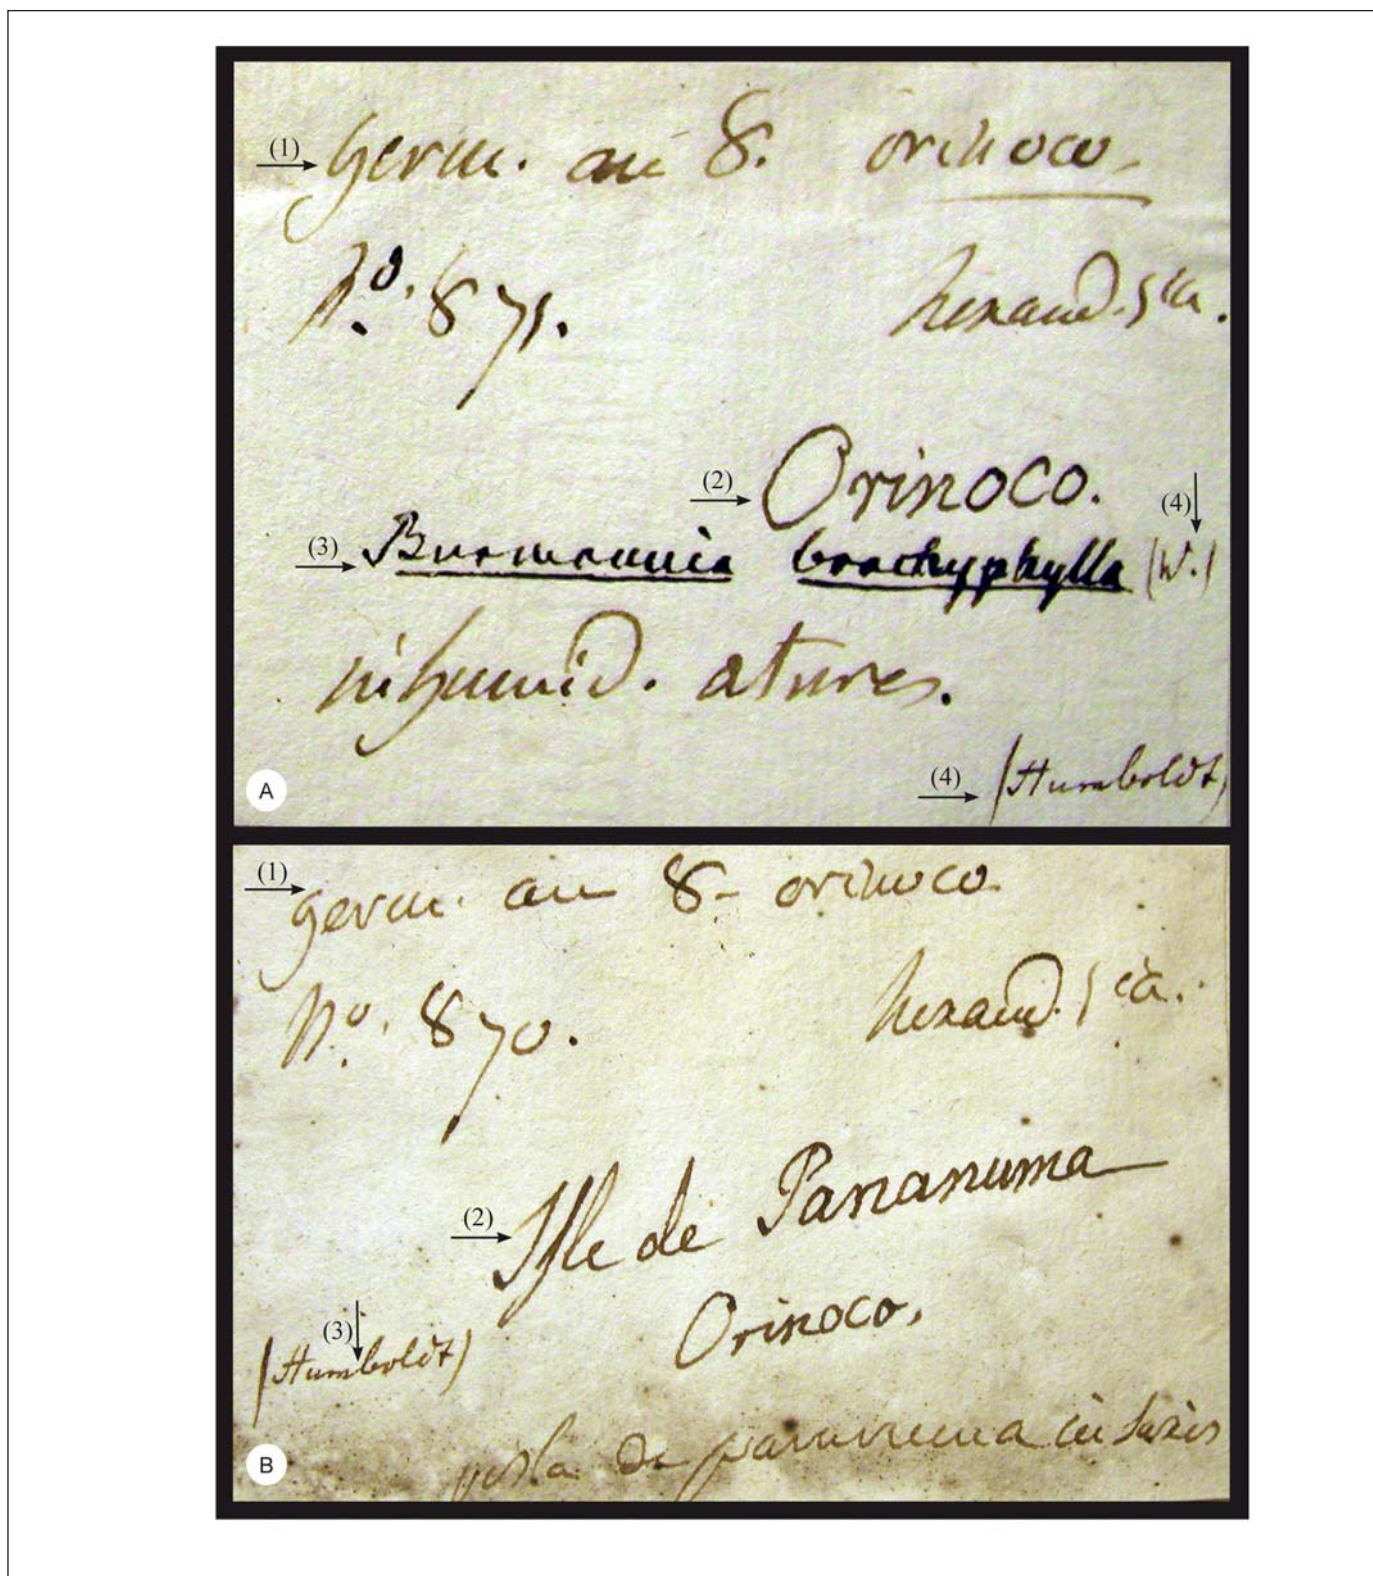 (1) germ. an 8. orinoco.
No. 871. hexand. 1ia.
(2) Orinoco. (4)
(3) Burmannia brachyphylla (W.)
in humid. atures.
(4) (Humboldt)
A
(1) germ. an 8 - orinoco.
No. 870. hexand. 1ia.
(2) Isle de Pananuma
Orinoco.
(3)
(Humboldt)
isla de pananuma in
B